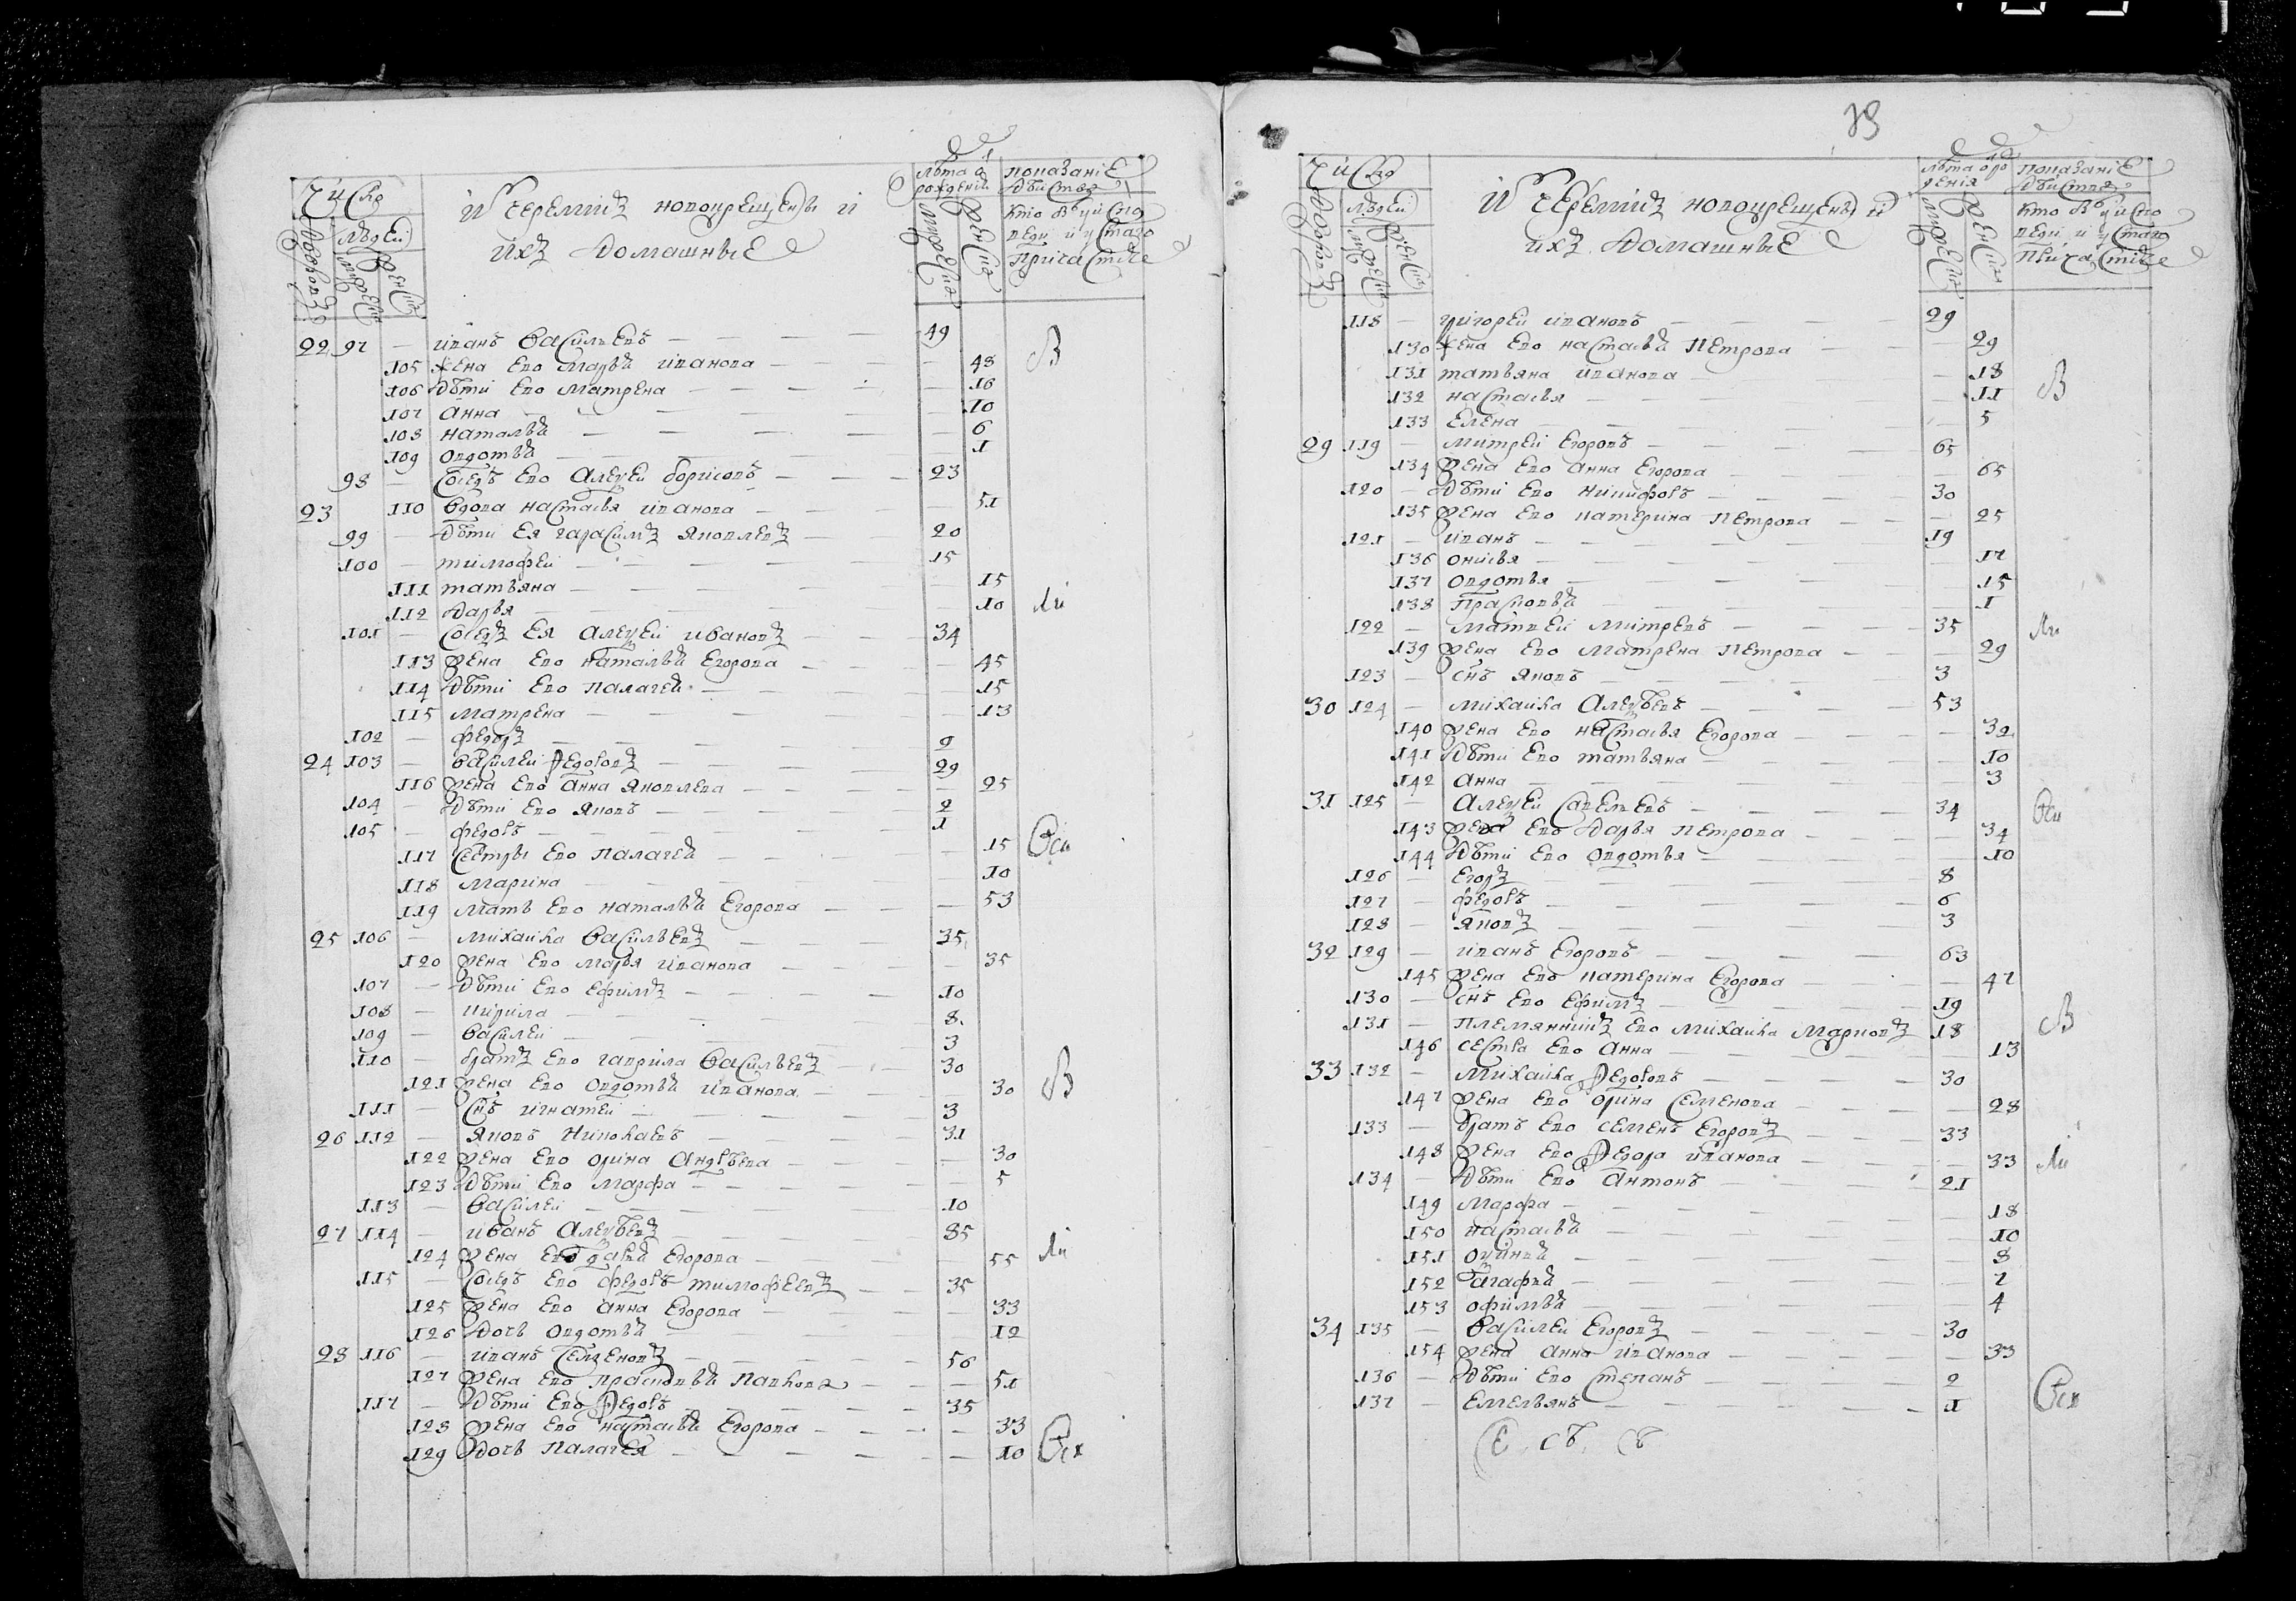 Число
людей
дворовъ
мужеска
женска
И Черемисъ новокрещены и
ихъ домашные
лѣта о
рожденiи
мужеска
женска
показанiе
дѣйства
кто былъ у испо
веди и у стаго
причастия
22 97 — иванъ василъевъ — 49
105 жена ево марья иванова — 48 В
106 дѣти ево матрена — 16
107 анна — 10
108 наталья — 6
109 овдотья — 1
98 — соседъ ево алексеи борисовъ — 23
23 110 вдова настасья иванова — 51
99 — дѣти ея гарасимъ яковлевъ — 20
100 — тимофеи — 15
111 татьяна — 15
112 дарья — 10 Ли
101 — соседъ ея алексеи ивановъ — 34
113 жена ево наталья егорова — 45
114 дѣти ево палагея — 15
115 матрена — 13
102 — федоръ — 9
24 103 — василеи федоровъ — 29
116 жена ево анна яковлева — 25
104 — дѣти ево яковъ — 2
105 — федоръ — 1
117 сестры ево палагея — 15 Оси
118 марина — 10
119 мать ево наталья егорова — 53
25 106 — михаила василъевъ — 35
120 жена ево марья иванова — 35
107 — дѣти ево ефимъ — 10
108 — кирила — 8
109 — василеи — 3
110 — братъ ево гаврила василъевъ — 30
121 жена ево овдотья иванова — 30 В
111 — снъ игнатеи — 3
26 112 — яковъ николаевъ — 31
122 жена ево орина андрѣева — 30
123 дѣти ево марфа — 5
113 — василеи — 10
27 114 — иванъ алексѣевъ — 85
124 жена ево дарья егорова — 55 Ли
115 — соседъ ево федоръ тимофеевъ — 35
125 жена ево анна егорова — 33
126 дочь овдотья — 12
28 116 — иванъ семеновъ — 56
127 жена ево прасковья павлова — 51
117 — дѣти ево федоръ — 35
128 жена ево настасья егорова — 33
129 дочь палагея — 10
Число
людей
дворовъ
мужеска
женска
И Черемисъ новокрещены и
ихъ домашные
лѣта о ро
жденiя
мужеска
женска
показанiе
дѣйствия
кто былъ у испо
веди и у стаго
причастия
118 — григореи ивановъ — 29
130 жена ево настасья петрова — 29
131 татьяна иванова — 18
132 настасья — 11 В
133 елена — 5
29 119 — митреи егоровъ — 65
134 жена ево анна егорова — 65
120 — дѣти ево никифоръ — 30
135 жена ево катерина петрова — 25
121 — иванъ — 19
136 онисья — 17
137 овдотья — 15
138 прасковья — 1
122 — матвеи митревъ — 35 Ли
139 жена ево матрена петрова — 29
123 — снъ яковъ — 3
30 124 — михаила алексѣевъ — 53
140 жена ево настасья егорова — 32
141 дѣти ево татьяна — 10
142 анна — 3
31 125 — алексеи савельевъ — 34 Оси
143 жена ево дарья петрова — 34
144 дѣти ево овдотья — 10
126 — егоръ — 8
127 — федоръ — 6
128 — яковъ — 3
32 129 — иванъ егоровъ — 63
145 жена ево катерина егорова — 47
130 — снъ ево ефимъ — 19
131 — племянникъ ево михаила марковъ 18 В
146 сестра ево анна — 13
33 132 — михаила федоровъ — 30
147 жена ево орина семенова — 28
133 — братъ ево семенъ егоровъ — 33
148 жена ево федора иванова — 33 Ли
134 — дѣти ево антонъ — 21
149 марфа — 18
150 настасья — 10
151 — 8
152 агафья — 7
153 офимья — 4
34 135 — василеи егоровъ — 30
154 жена анна иванова — 33
136 — дѣти ево степанъ — 2
137 — емельянъ — 1